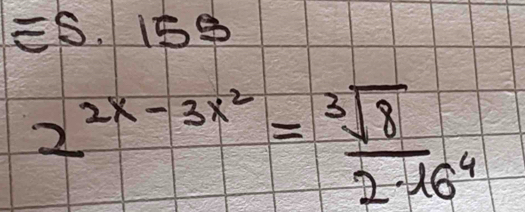 ES. 155
2^{2x - 3x^2} = \frac{\sqrt[3]{8}}{2 \cdot 16^4}